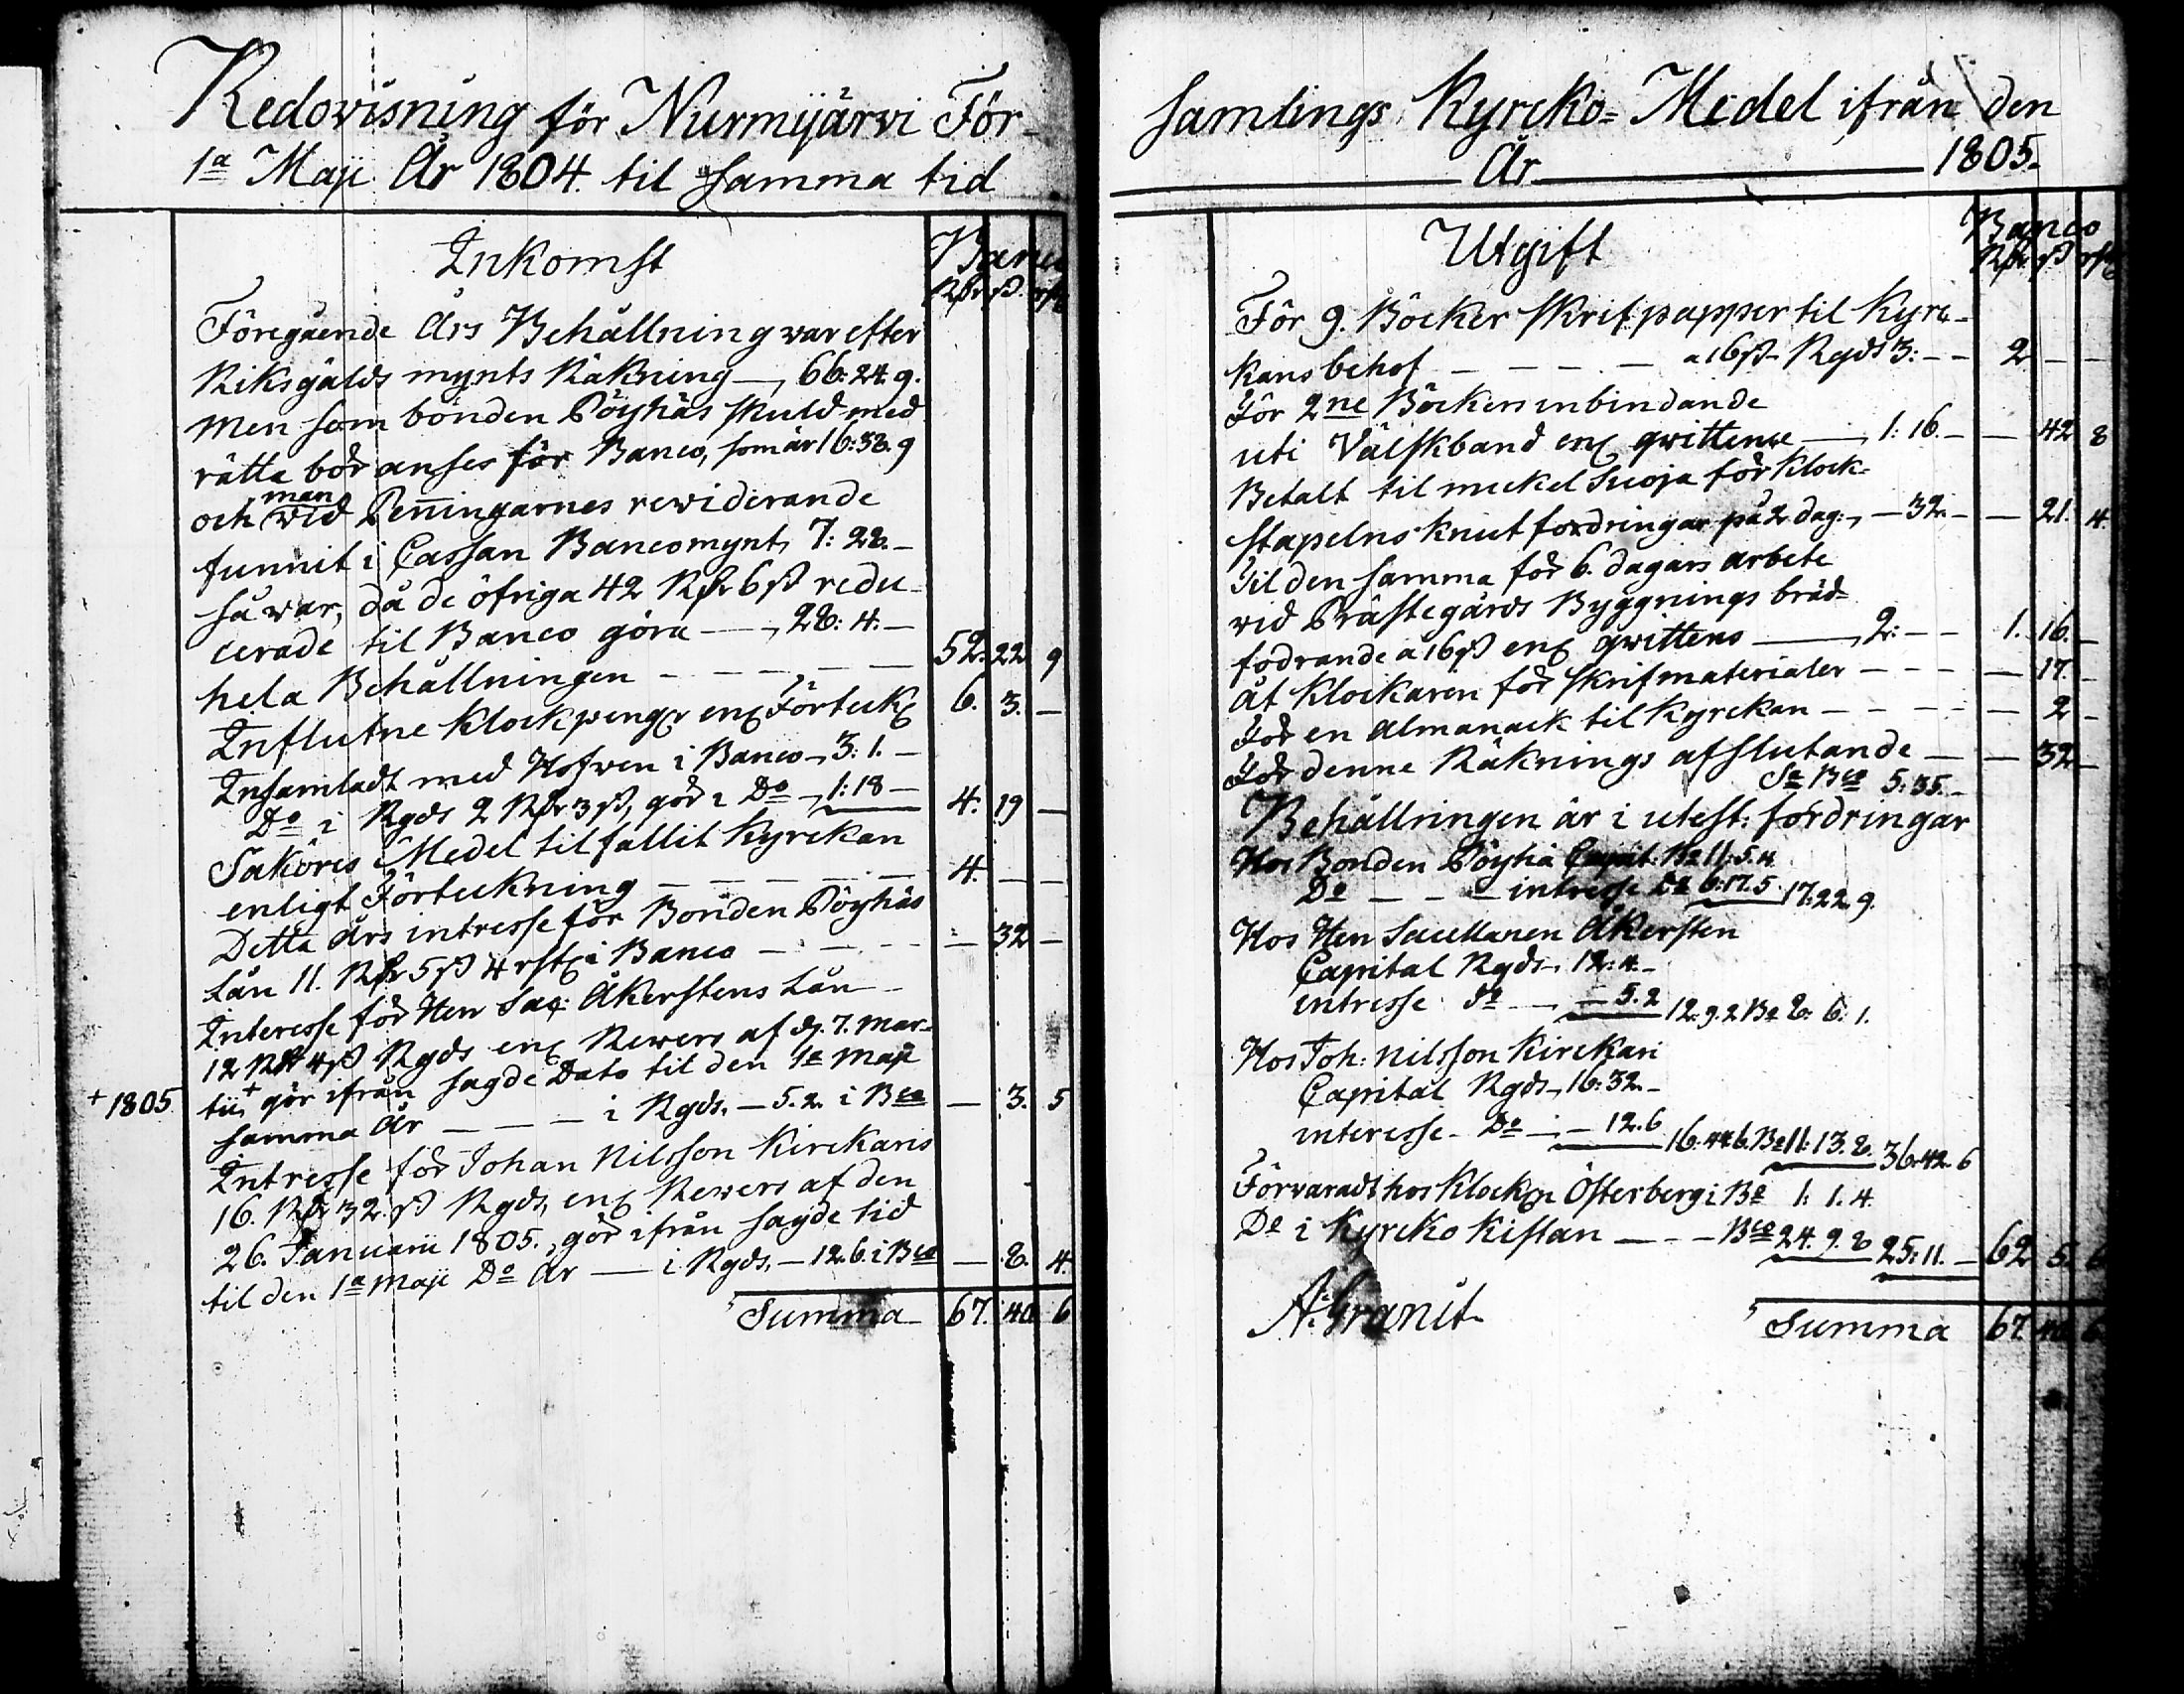 Redovisning för Nurmijärvi För-
1a Maji År 1804. til samma tid
Inkomst
Banco
Rdr ß. rst
Föregående Års Behållning war efter
Riksgälds mynts Räkning —, 66: 24. 9.
Men som bonden Pöyhäs skuld med
rätta bör anses för Banco, som är 16: 38. 9
och man wid Penningarnes reviderande
funnit i Cassan Bancomynt, 7: 28. —
så war, då de öfriga 42 Rdr 6 ß redu-
cerade til Banco göra —, 28: 4. —
hela Behållningen — — — — 52. 22 9
Influtne Klockpengr enl Förteckl 6. 3. —
Insamladt med Hofwen i Banco —, 3: 1. —
Do i Rgds 2 Rdr 3 ß, gör i Do —, 1: 18 — 4. 19 —
Saköres Medel tilfallit Kyrckan
enligt Förteckning — — — — — 4. — —
Detta Års intresse för Bonden Pöyhäs
Lån 11. Rdr 5 ß 4 rst i Banco — — — — 32 —
Interesse för Herr Sac: Åkerstens Lån —
12 Rdr 4 ß Rgds enl Revers af d. 7. Mar-
+ 1805 tii, + gör ifrån sagde Dato til den 1a Maji
samma År — — — i Rgds, — 5. 2. i Bco — 3. 5
Intresse för Johan Nilsson Kirckaris
16. Rdr 32. ß Rgds, enl Revers af den
26. Januarii 1805., gör ifrån sagde tid
til den 1a Maji Do År — i Rgds, — 12. 6. i Bco — 8. 4.
Summa 67. 40 6
samlings Kyrcko- Medel ifrån den
År 1805.
Utgift
Banco
Rdr ß rst
För 9. Böcker Skrifpapper til Kyrc-
kans behof — — — — a 16 ß Rgds 3: — — 2 — —
För 2ne Böckers inbindande
uti Välskband enl qwittence —, 1: 16. — — 42 8
Betalt til Mickel Suoja för Klock-
stapelns knutfodringar på 2 dag:, — 32. — — 21. 4.
Til den samma för 6. dagars arbete
vid Prästegårds Byggnings bräd-
fodrande a 16 ß enl qwittens —, 2: — — 1. 16. —
åt Klockaren för skrifmaterialer — — — — 17. —
För en Almanack til Kyrckan — — — — — 2 —
För denne Räknings afslutande — — 32 —
Sa Bco 5: 35. —
Behållningen är i utest: fordringar
Hos Bonden Pöyhä Capit. Bo 11. 5. 4
Do — — — intresse Do 6: 17. 5. 17: 22. 9.
Hos Herr Sacellanen Åkersten
Capital Rgds —, 12: 4. —
intresse do — — 5. 2 12: 9. 2 Bo 8: 6: 1.
Hos Joh: Nilsson Kirckari
Capital Rgds —, 16: 32. —
interesse — Do — — 12. 6 16: 44. 6. Bo 11: 13. 8. 36: 42. 6
Förvaradt hos Klockn Österberg i Bo 1: 1. 4.
Do i Kyrcko Kistan — — — Bco 24. 9. 8 25: 11. — 62 5. 6
A: Granit
Summa 67 40 6